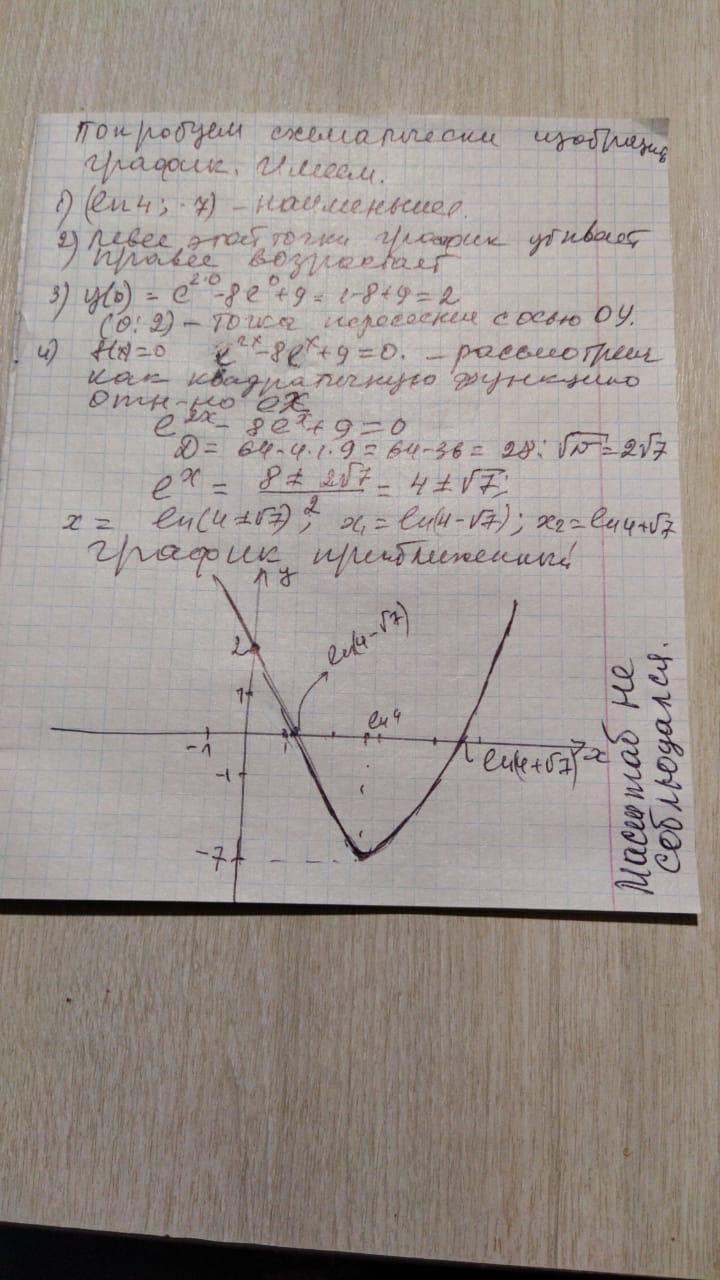 Попробуем схематически изобразить
график. Имеем.
1) (ln 4; -7) - наименьшее.
2) Левее этой точки график убывает
правее возрастает
3) y(0) = e^{2·0} - 8e^0 + 9 = 1 - 8 + 9 = 2
(0; 2) - точка пересечения с осью ОУ.
4) f(x)=0 e^{2x} - 8e^x + 9 = 0. - рассмотрим
как квадратичную функцию
отн-но e^x
e^{2x} - 8e^x + 9 = 0
D = 64 - 4·1·9 = 64 - 36 = 28; √D = 2√7
e^x = (8 ± 2√7)/2 = 4 ± √7;
x = ln(4±√7); x₁ = ln(4-√7); x₂ = ln 4+√7
График приближенный!
y
2
ln(4-√7)
1
ln 4
-1
1
x
ln(4+√7)
-1
-7
Масштаб не
соблюдался.